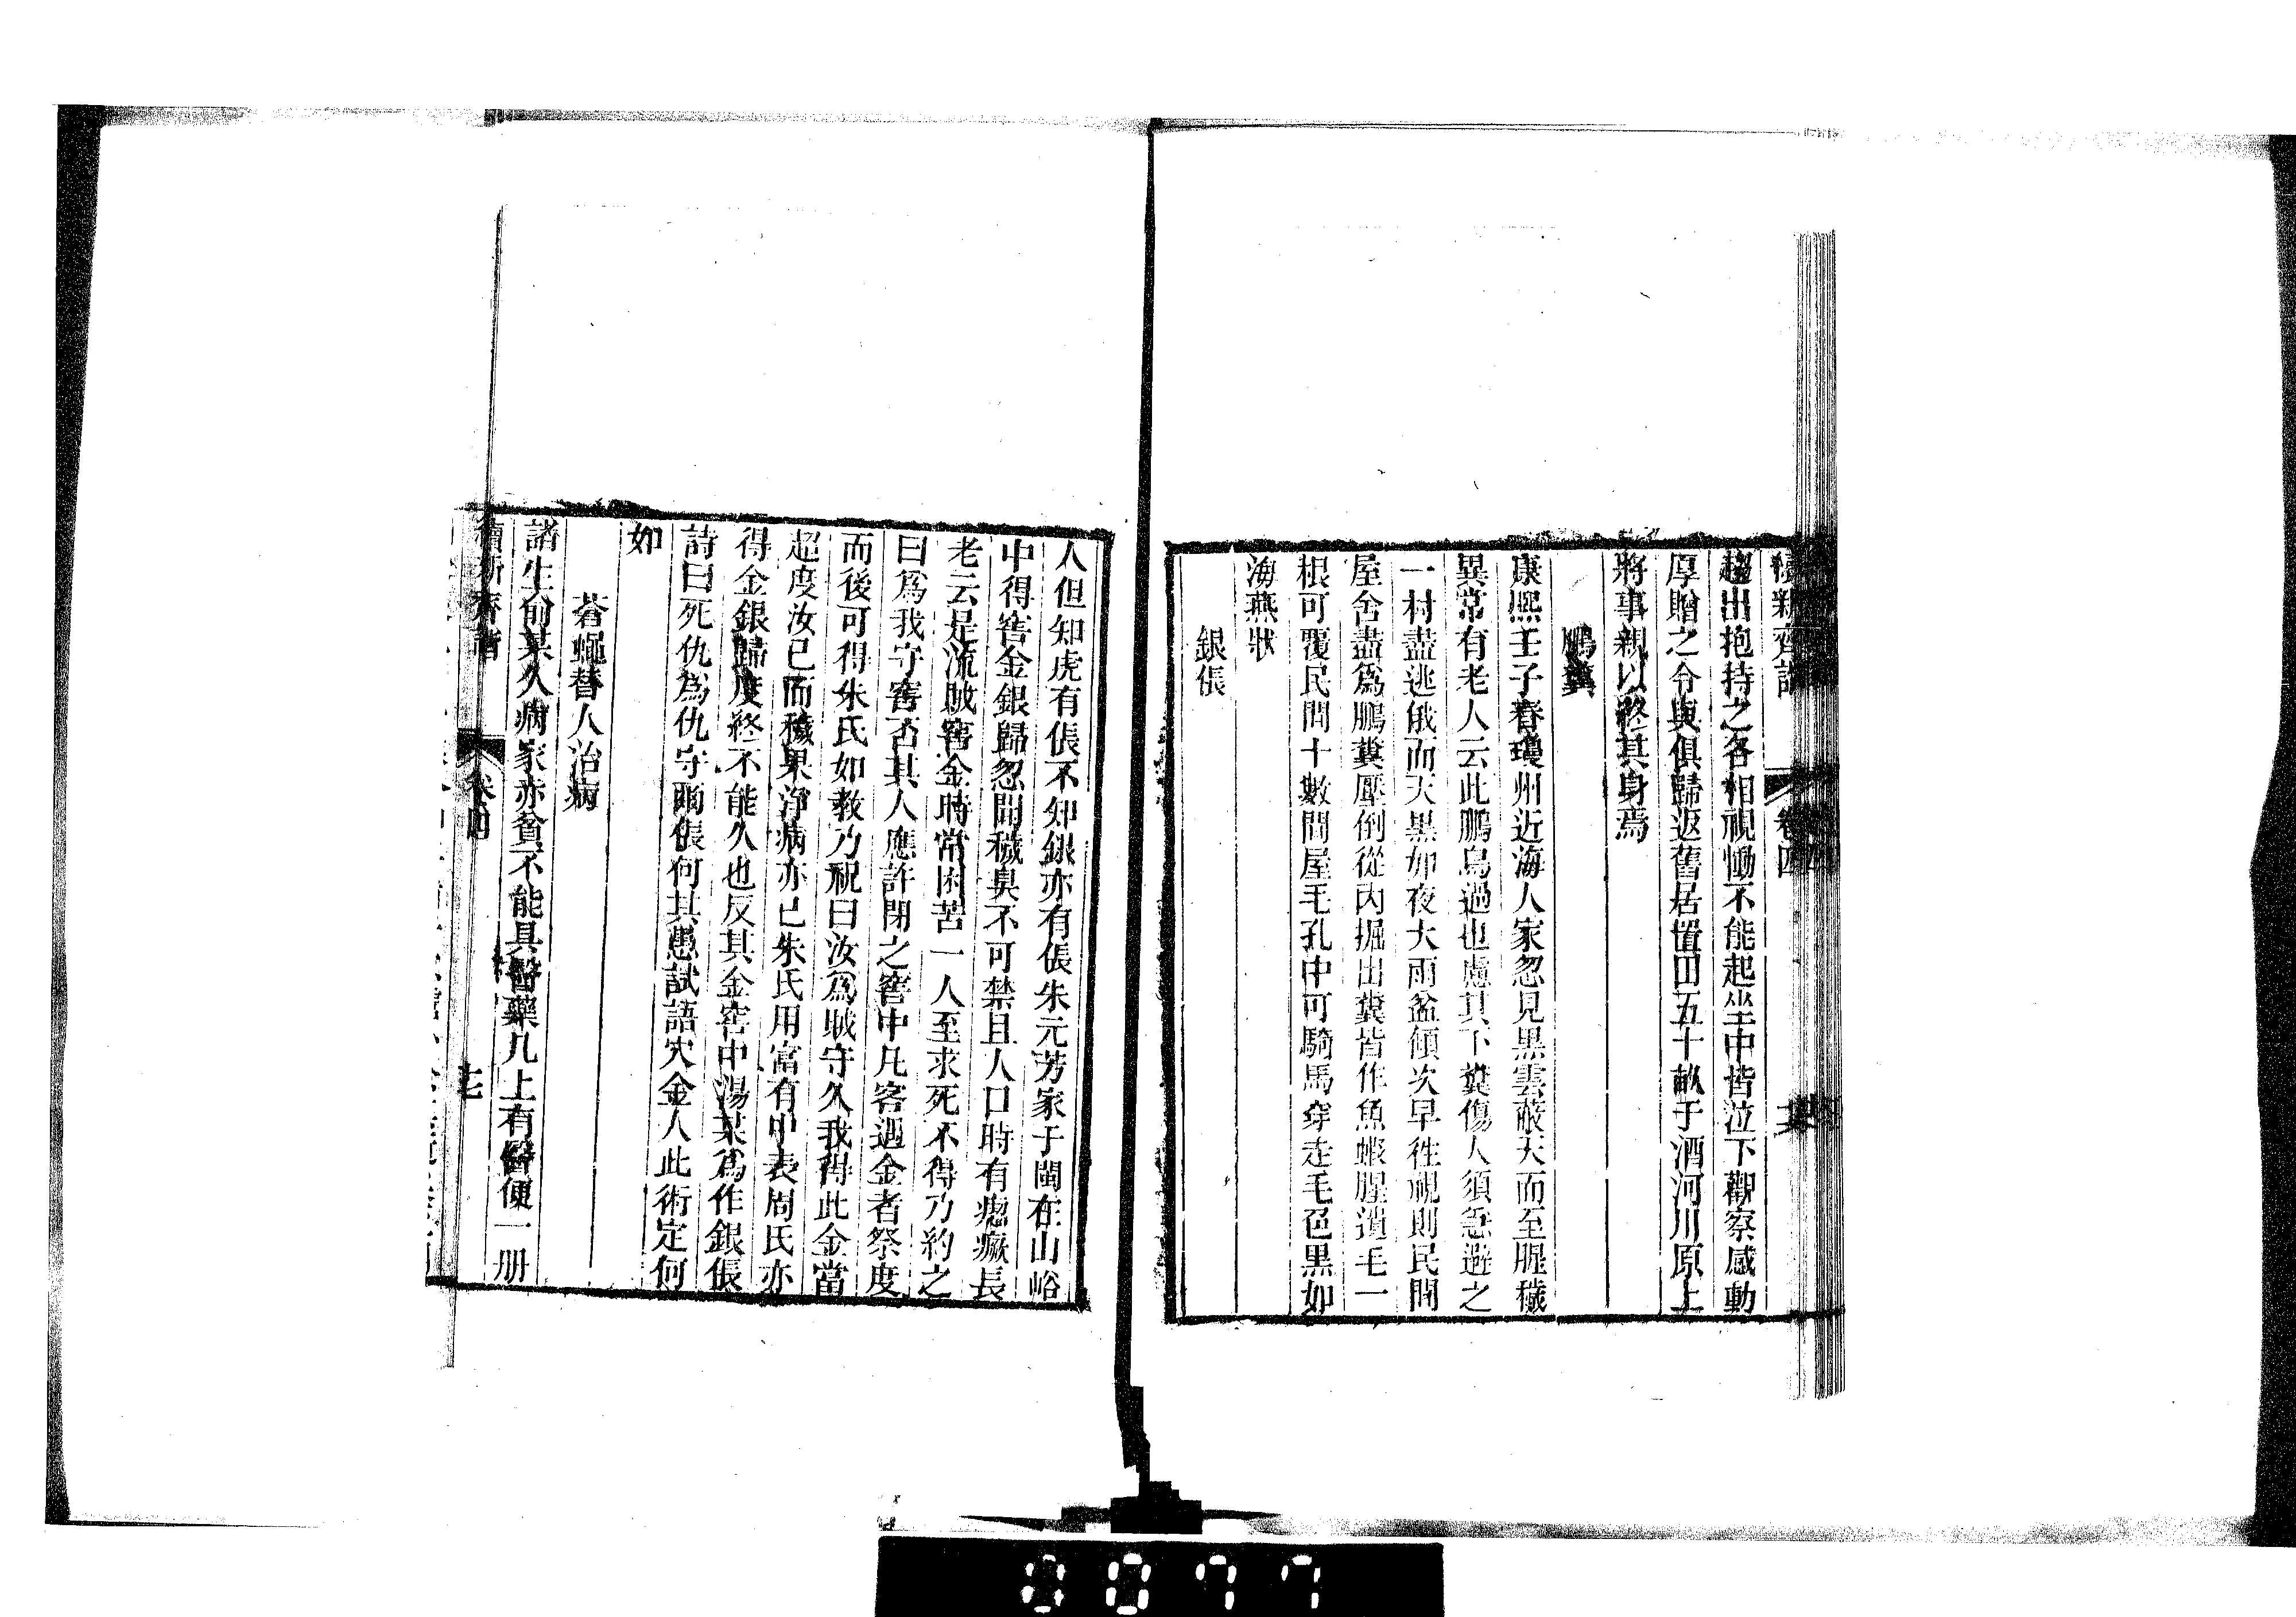 續新齊諧 卷四
趨出抱持之各相視慟不能起坐中皆泣下觀察感動
厚贈之令與俱歸返舊居置田五十畝于酒河川原上
將事親以終其身焉
鵬糞
康熙壬子春瓊州近海人家忽見黑雲蔽天而至腥穢
異常有老人云此鵬鳥過也慮其下糞傷人須急避之
一村盡逃俄而天黑如夜大雨盆傾次早往視則民間
屋舍盡爲鵬糞壓倒從內掘出糞皆作魚蝦腥遺毛一
根可覆民間十數間屋毛孔中可騎馬穿走毛色黑如
海燕狀
銀倀
人但知虎有倀不知銀亦有倀朱元芳家于閩在山峪
中得窖金銀歸忽聞穢臭不可禁且人口時有瘛瘲長
老云是流賊窖金時常困苦一人至求死不得乃約之
曰爲我守窖否其人應許閉之窖中凡客遇金者祭度
而後可得朱氏如教乃祝曰汝爲賊守久我得此金當
超度汝已而穢果淨病亦已朱氏用富有中表周氏亦
得金銀歸度終不能久也反其金窖中湯某爲作銀倀
詩曰死仇爲仇守爾倀何其愚試語穴金人此術定何
如
蒼蠅替人治病
諸生俞某久病家亦貧不能具醫藥几上有醫便一册
續新齊諧 卷四 七